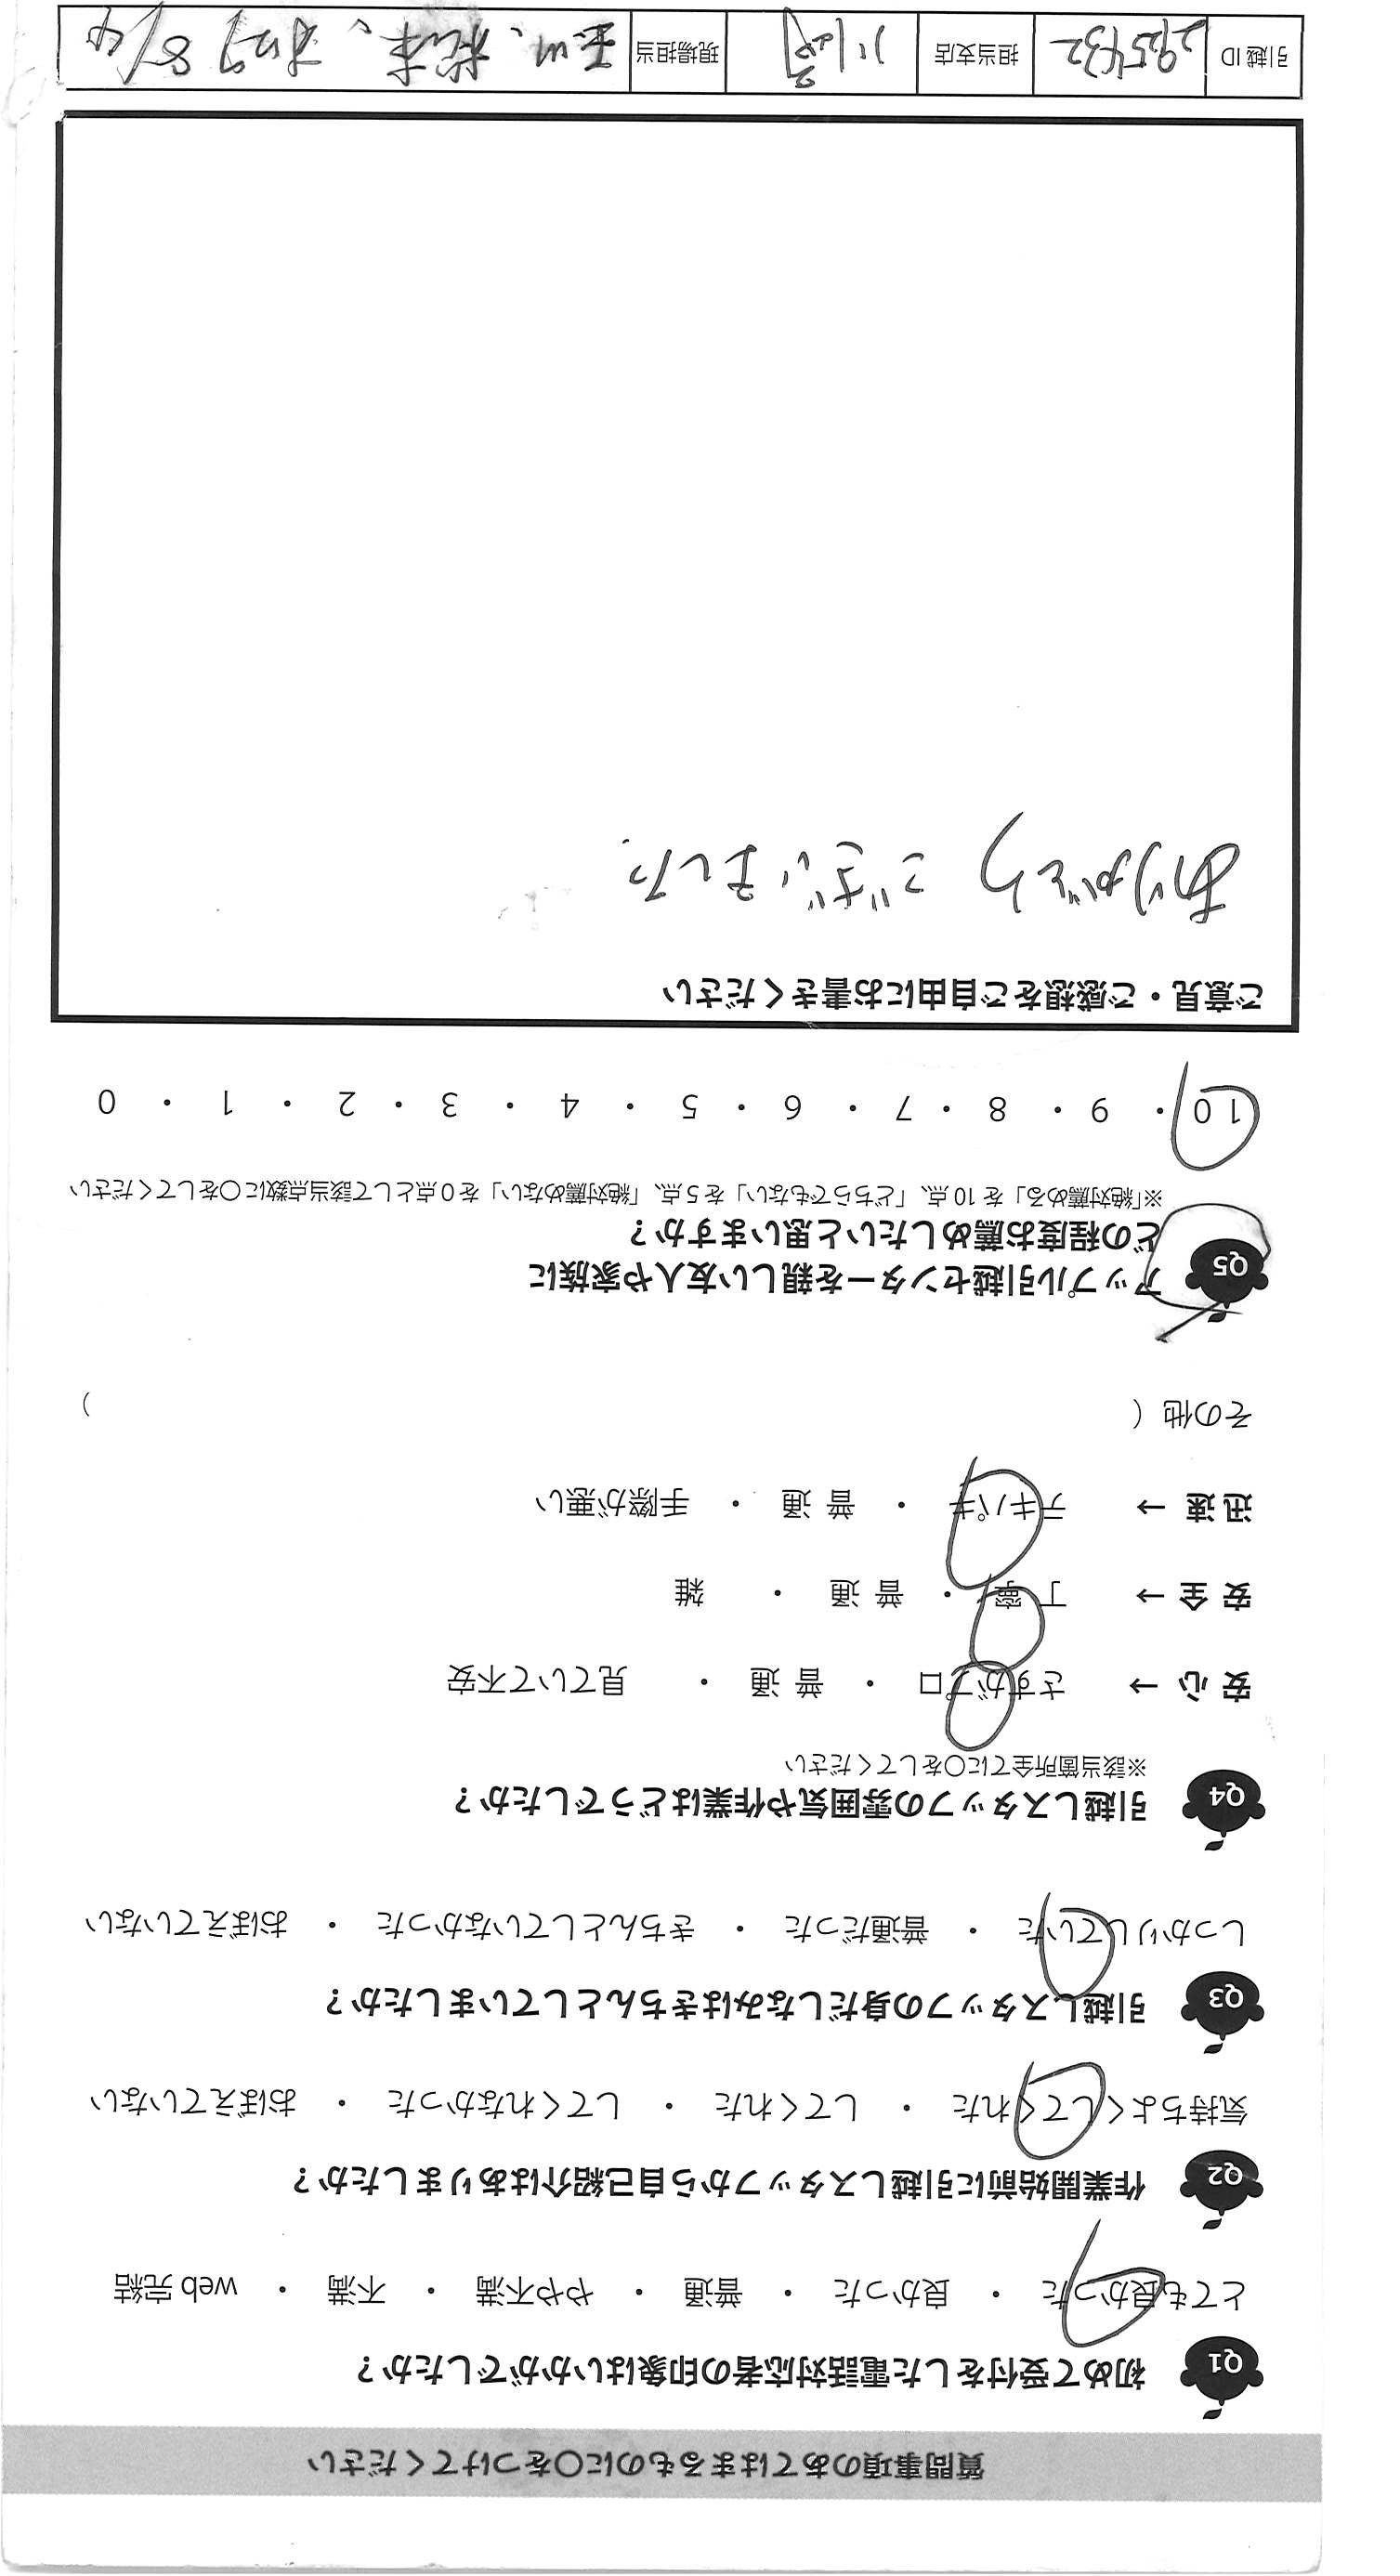 質問事項のあてはまるものに〇をつけてください
Q1 初めて受付をした電話対応者の印象はいかがでしたか？
とても良かった ・ 良かった ・ 普通 ・ やや不満 ・ 不満 ・ web 完結
Q2 作業開始前に引越しスタッフから自己紹介はありましたか？
気持ちよくしてくれた ・ してくれた ・ してくれなかった ・ おぼえていない
Q3 引越しスタッフの身だしなみはきちんとしていましたか？
しっかりしていた ・ 普通だった ・ きちんとしていなかった ・ おぼえていない
Q4 引越しスタッフの雰囲気や作業はどうでしたか？
※該当箇所全てに〇をしてください
安 心 → さすがプロ ・ 普 通 ・ 見ていて不安
安 全 → 丁 寧 ・ 普 通 ・ 雑
迅 速 → テキパキ ・ 普 通 ・ 手際が悪い
その他（ ）
Q5 アップル引越センターを親しい友人や家族に
どの程度お薦めしたいと思いますか？
※「絶対薦める」を 10 点、「どちらでもない」を 5 点、「絶対薦めない」を 0 点として該当点数に〇をしてください
10 ・ 9 ・ 8 ・ 7 ・ 6 ・ 5 ・ 4 ・ 3 ・ 2 ・ 1 ・ 0
ご意見・ご感想をご自由にお書きください
ありがとう ございました.
引越 ID 2925432 担当支店 川崎 現場担当 玉川、松本、